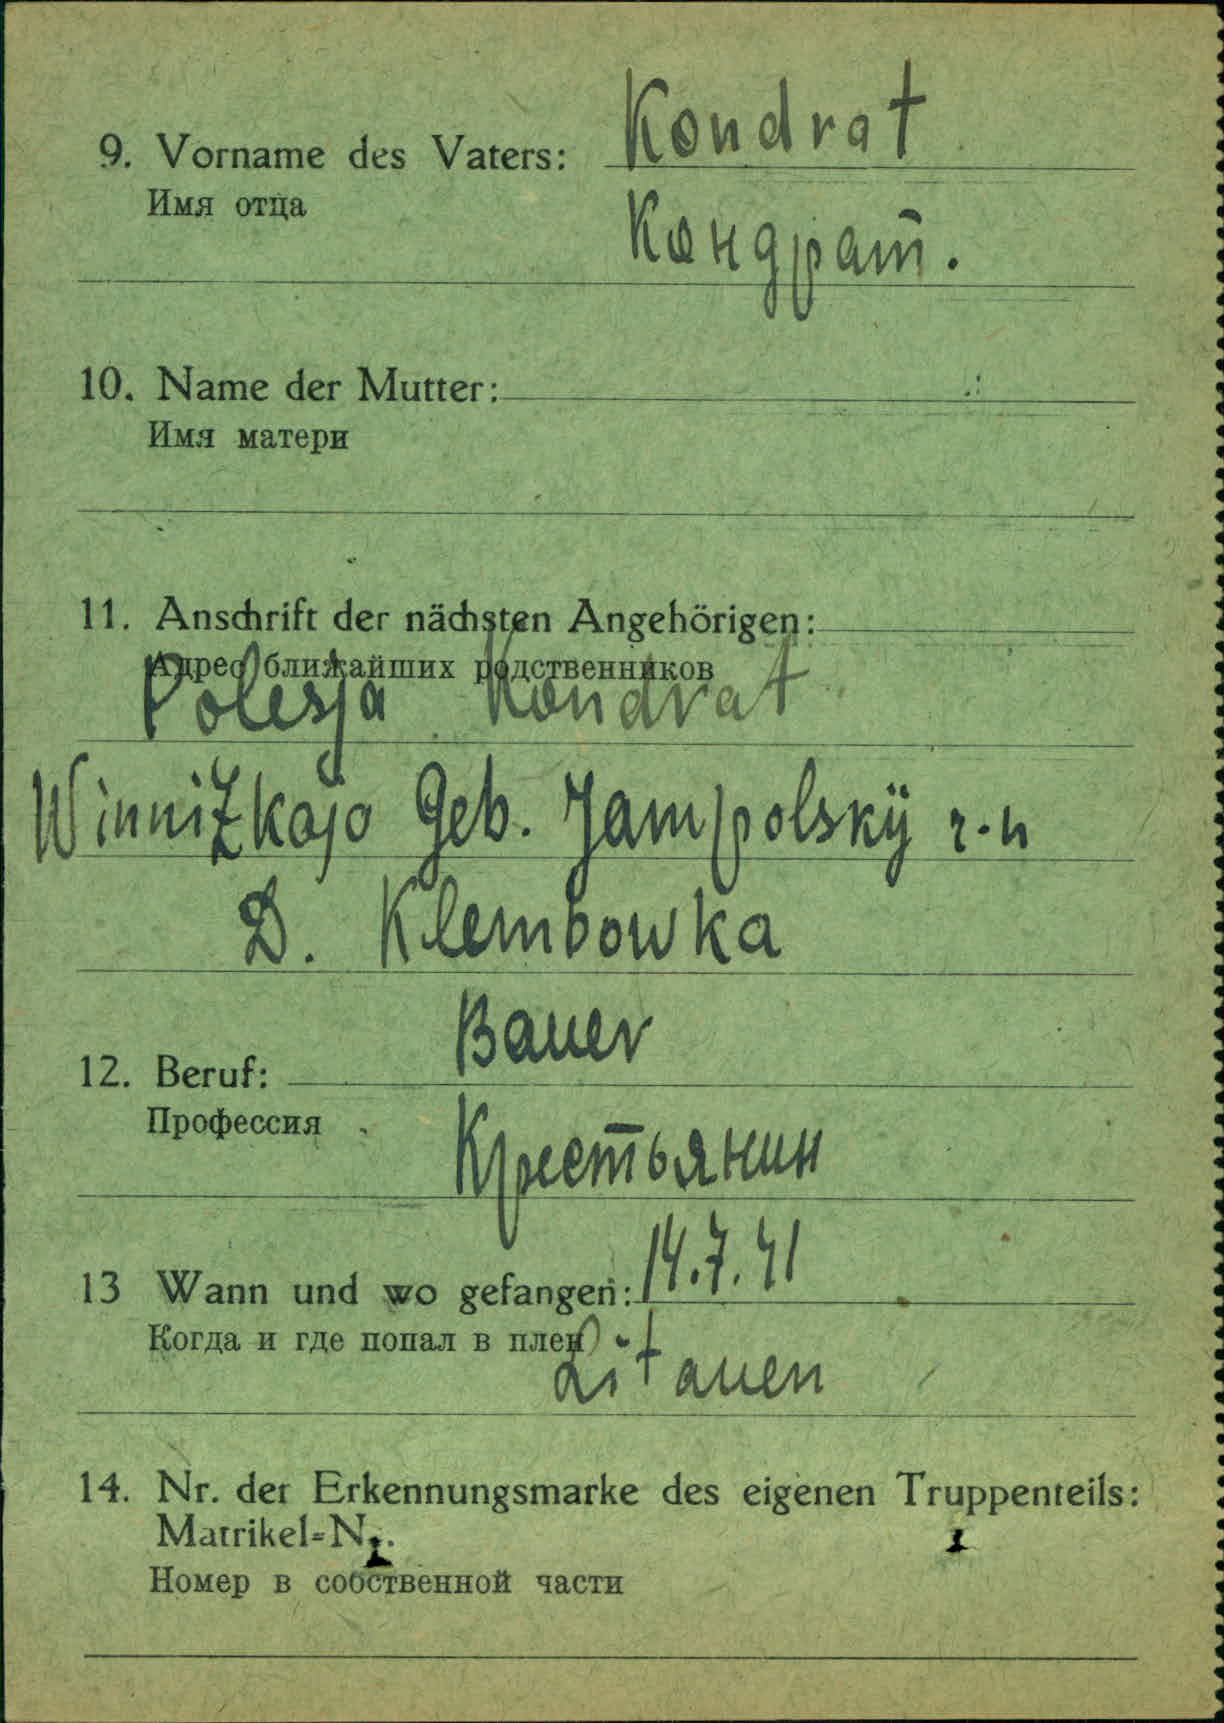 9. Vorname des Vaters: Kondrat
Имя отца
Кондрат.
10. Name der Mutter:
Имя матери
11. Anschrift der nächsten Angehörigen:
Адрес ближайших родственников
Polesja Kondrat
Winnizkaja Geb. Jampolskÿ r-n
D. Klembowka
Bauer
12. Beruf:
Профессия
Крестьянин
13 Wann und wo gefangen: 14.7.41
Когда и где попал в плен
Litauen
14. Nr. der Erkennungsmarke des eigenen Truppenteils:
Matrikel-Nr.
Номер в собственной части